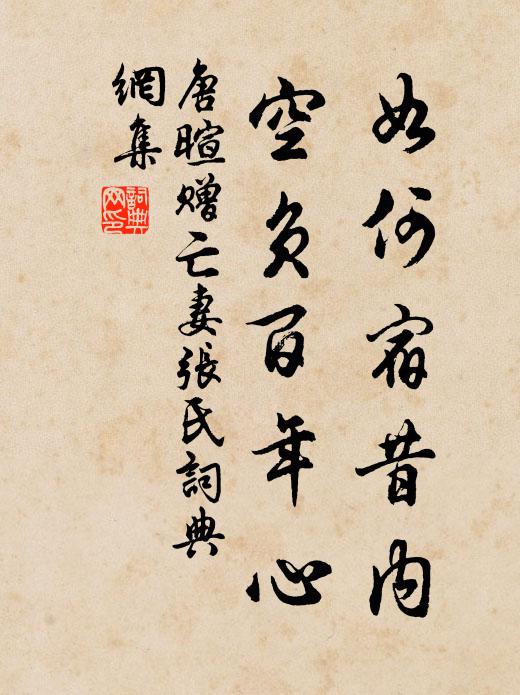 如何宿昔内
空負百年心
唐暄赠亡妻張氏詞典
網集
詞典
网印